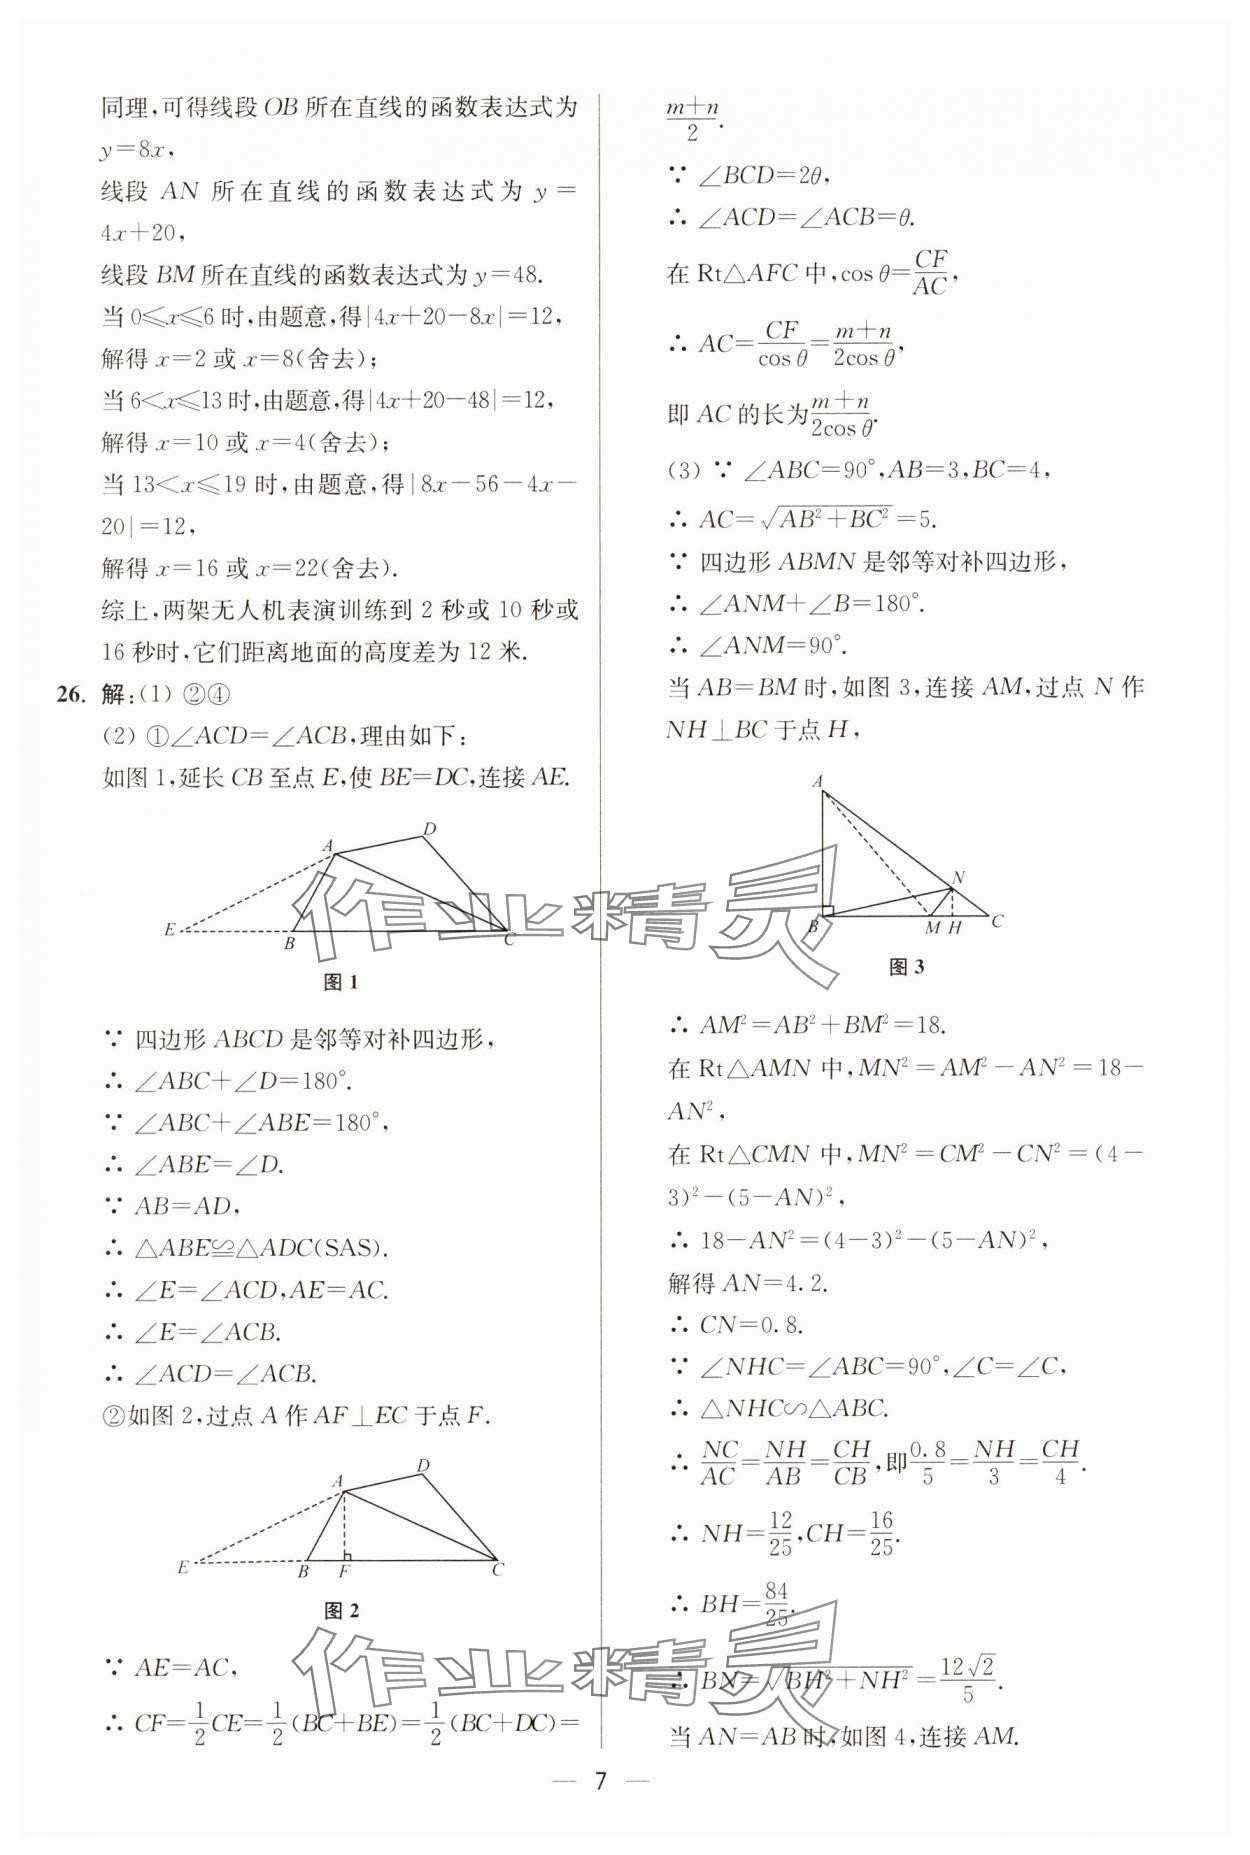 同理,可得线段 OB 所在直线的函数表达式为
y=8x,
线段 AN 所在直线的函数表达式为 y=
4x+20,
线段 BM 所在直线的函数表达式为 y=48.
当 0⩽x⩽6 时,由题意,得|4x+20-8x|=12,
解得 x=2 或 x=8(舍去);
当 6<x⩽13 时,由题意,得|4x+20-48|=12,
解得 x=10 或 x=4(舍去);
当 13<x⩽19 时,由题意,得|8x-56-4x-
20|=12,
解得 x=16 或 x=22(舍去).
综上,两架无人机表演训练到 2 秒或 10 秒或
16 秒时,它们距离地面的高度差为 12 米.
26. 解:(1) ②④
(2) ①∠ACD=∠ACB,理由如下:
如图 1,延长 CB 至点 E,使 BE=DC,连接 AE.
A
D
E
B
C
图 1
∵ 四边形 ABCD 是邻等对补四边形,
∴ ∠ABC+∠D=180°.
∵ ∠ABC+∠ABE=180°,
∴ ∠ABE=∠D.
∵ AB=AD,
∴ △ABE≌△ADC(SAS).
∴ ∠E=∠ACD,AE=AC.
∴ ∠E=∠ACB.
∴ ∠ACD=∠ACB.
②如图 2,过点 A 作 AF⊥EC 于点 F.
A
D
E
B
F
C
图 2
∵ AE=AC,
∴ CF=1/2CE=1/2(BC+BE)=1/2(BC+DC)=
(m+n)/2.
∵ ∠BCD=2θ,
∴ ∠ACD=∠ACB=θ.
在 Rt△AFC 中,cos θ=CF/AC,
∴ AC=CF/cos θ=(m+n)/2cos θ,
即 AC 的长为(m+n)/2cos θ.
(3) ∵ ∠ABC=90°,AB=3,BC=4,
∴ AC=√(AB²+BC²)=5.
∵ 四边形 ABMN 是邻等对补四边形,
∴ ∠ANM+∠B=180°.
∴ ∠ANM=90°.
当 AB=BM 时,如图 3,连接 AM,过点 N 作
NH⊥BC 于点 H,
A
N
B
M
H
C
图 3
∴ AM²=AB²+BM²=18.
在 Rt△AMN 中,MN²=AM²-AN²=18-
AN²,
在 Rt△CMN 中,MN²=CM²-CN²=(4-
3)²-(5-AN)²,
∴ 18-AN²=(4-3)²-(5-AN)²,
解得 AN=4.2.
∴ CN=0.8.
∵ ∠NHC=∠ABC=90°,∠C=∠C,
∴ △NHC∽△ABC.
∴ NC/AC=NH/AB=CH/CB,即0.8/5=NH/3=CH/4.
∴ NH=12/25,CH=16/25.
∴ BH=84/25.
∴ BN=√(BH²+NH²)=12√2/5.
当 AN=AB 时,如图 4,连接 AM.
— 7 —
作业精灵
作业精灵